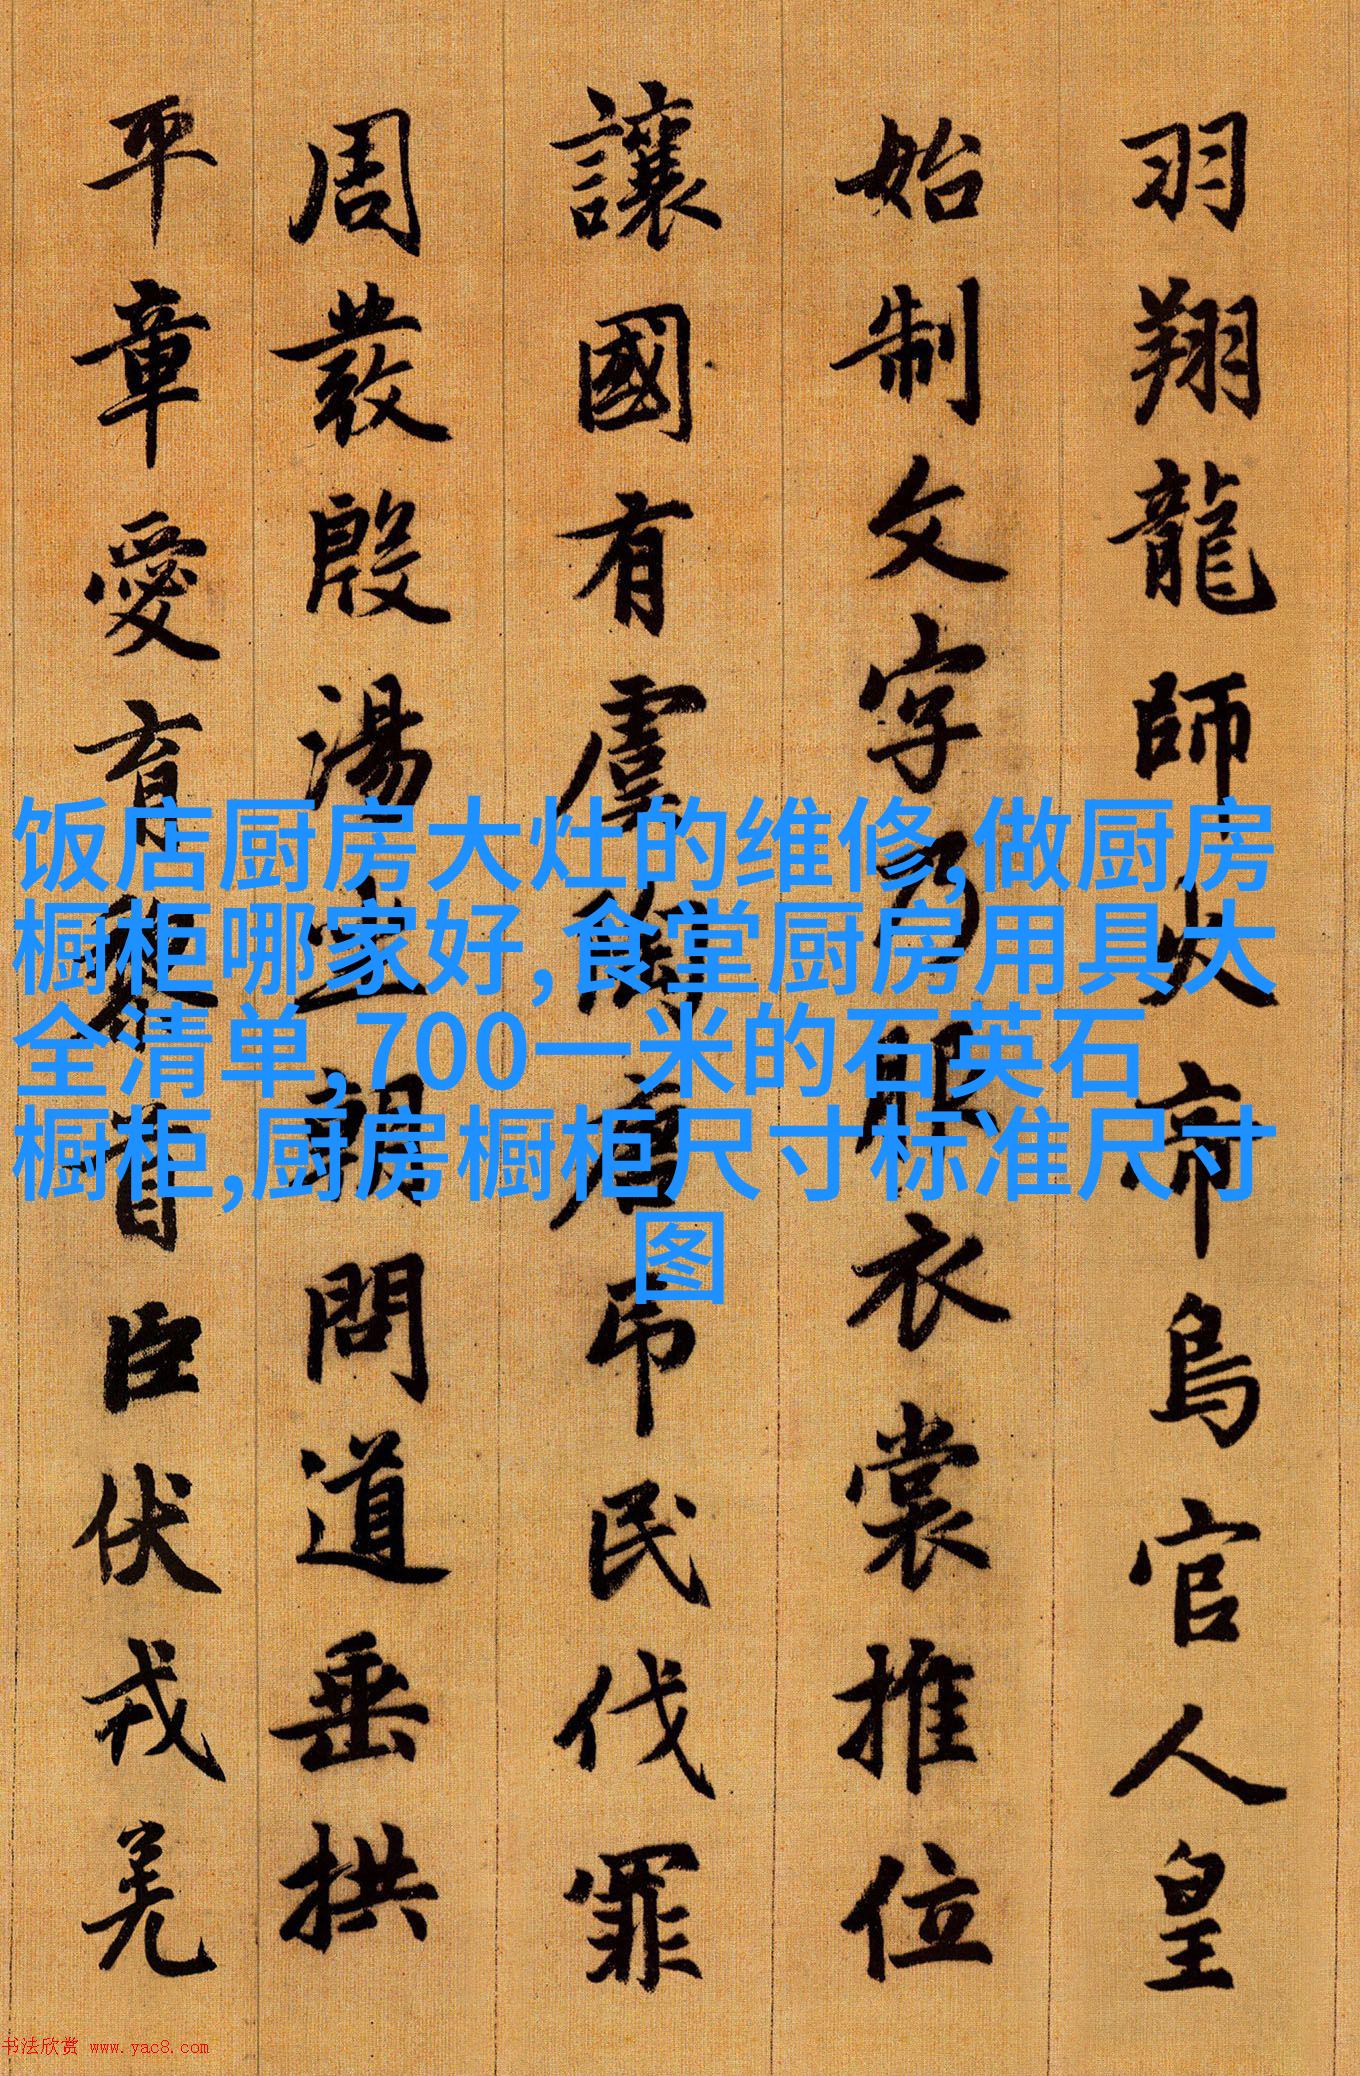 羽翔龍師火帝鳥官人皇
始制文字乃服衣裳推位
讓國有虞陶唐吊民伐罪
周發殷湯坐朝問道垂拱
平章愛育黎首臣伏戎羌
饭店厨房大灶的维修,做厨房
橱柜哪家好,食堂厨房用具大
全清单,700一米的石英石
橱柜,厨房橱柜尺寸标准尺寸
图
书法欣赏 www.yac8.com